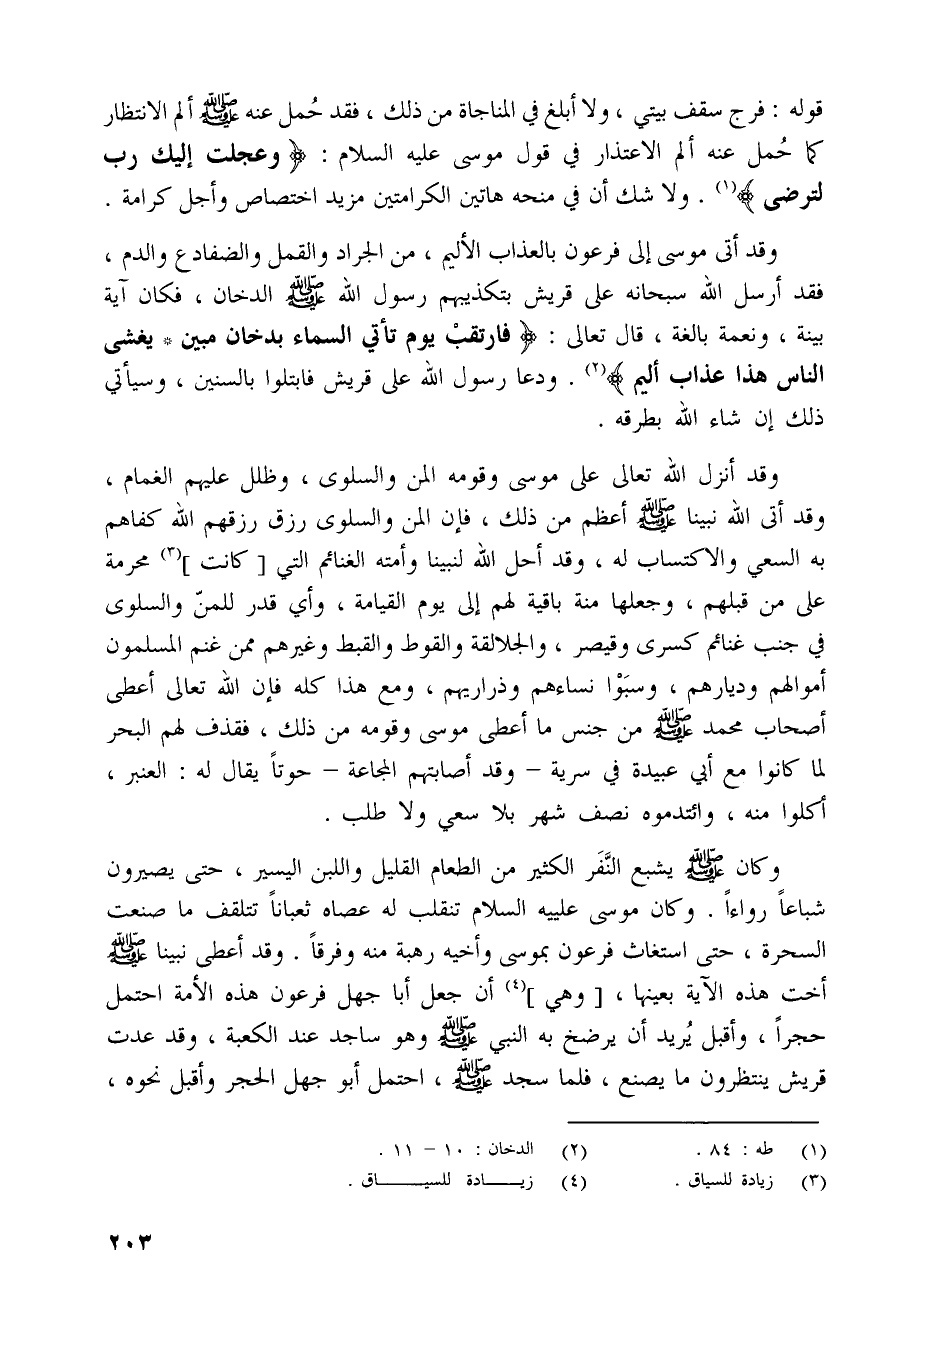 قوله : فرج سقف بيتي ، ولا أبلغ في المناجاة من ذلك ، فقد حُمل عنه ﷺ ألم الانتظار
كما حُمل عنه ألم الاعتذار في قول موسى عليه السلام : ﴿ وعجلت إليك رب
لترضى ﴾(١) . ولا شك أن في منحه هاتين الكرامتين مزيد اختصاص وأجل كرامة .
وقد أتى موسى إلى فرعون بالعذاب الأليم ، من الجراد والقمل والضفادع والدم ،
فقد أرسل الله سبحانه على قريش بتكذيبهم رسول الله ﷺ الدخان ، فكان آية
بينة ، ونعمة بالغة ، قال تعالى : ﴿ فارتقبْ يوم تأتي السماء بدخان مبين * يغشى
الناس هذا عذاب أليم ﴾(٢) . ودعا رسول الله على قريش فابتلوا بالسنين ، وسيأتي
ذلك إن شاء الله بطرقه .
وقد أنزل الله تعالى على موسى وقومه المن والسلوى ، وظلل عليهم الغمام ،
وقد أتى الله نبينا ﷺ أعظم من ذلك ، فإن المن والسلوى رزق رزقهم الله كفاهم
به السعي والاكتساب له ، وقد أحل الله لنبينا وأمته الغنائم التي [ كانت ](٣) محرمة
على من قبلهم ، وجعلها منة باقية لهم إلى يوم القيامة ، وأي قدر للمنّ والسلوى
في جنب غنائم كسرى وقيصر ، والجلالقة والقوط والقبط وغيرهم ممن غنم المسلمون
أموالهم وديارهم ، وسبَوْا نساءهم وذراريهم ، ومع هذا كله فإن الله تعالى أعطى
أصحاب محمد ﷺ من جنس ما أعطى موسى وقومه من ذلك ، فقذف لهم البحر
لما كانوا مع أبي عبيدة في سرية – وقد أصابتهم المجاعة – حوتاً يقال له : العنبر ،
أكلوا منه ، وائتدموه نصف شهر بلا سعي ولا طلب .
وكان ﷺ يشبع النَّفَر الكثير من الطعام القليل واللبن اليسير ، حتى يصيرون
شباعاً رواءاً . وكان موسى علييه السلام تنقلب له عصاه ثعباناً تتلقف ما صنعت
السحرة ، حتى استغاث فرعون بموسى وأخيه رهبة منه وفرقاً . وقد أعطى نبينا ﷺ
أخت هذه الآية بعينها ، [ وهي ](٤) أن جعل أبا جهل فرعون هذه الأمة احتمل
حجراً ، وأقبل يُريد أن يرضخ به النبي ﷺ وهو ساجد عند الكعبة ، وقد عدت
قريش ينتظرون ما يصنع ، فلما سجد ﷺ ، احتمل أبو جهل الحجر وأقبل نحوه ،
(١) طه : ٨٤ . (٢) الدخان : ١٠ – ١١ .
(٣) زيادة للسياق . (٤) زيـــادة للسيـــاق .
٢٠٣